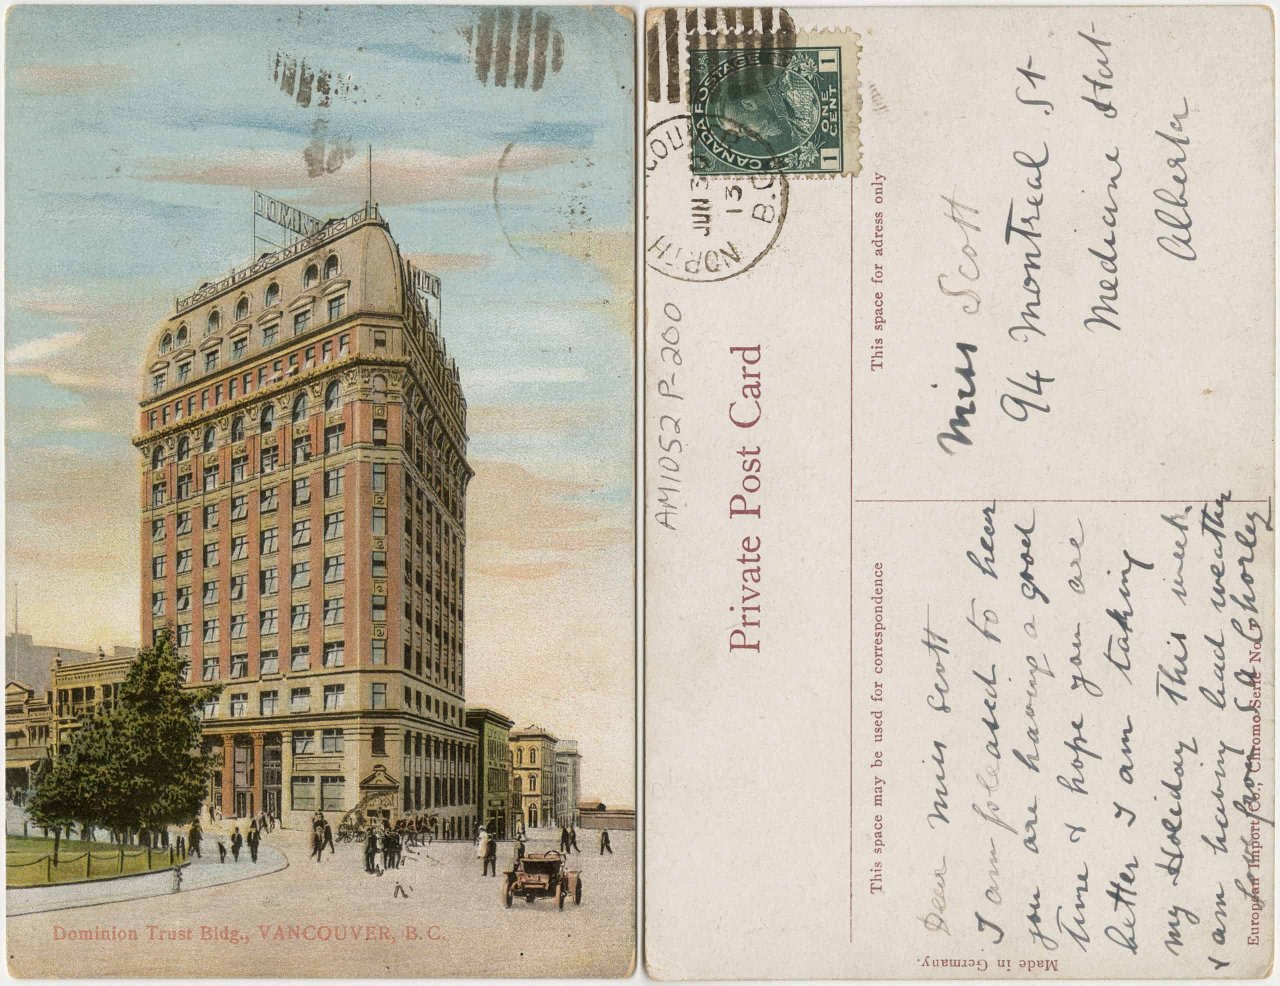 DOMINI
Dominion Trust Bldg., VANCOUVER, B. C.
CANADA POSTAGE
1 ONE CENT 1
NORTH
JUN 3
13
B.C.
AM1052 P-200
Private Post Card
This space may be used for correspondence
This space for adress only
Dear Miss Scott
I am pleased to hear
you are having a good
time & hope you are
better I am taking
my Holiday this week
& am having bad weather
love from
Chorley
Miss Scott
94 Montreal St
Medicine Hat
Alberta
Made in Germany.
European Import Co., Chromo-Serie No.